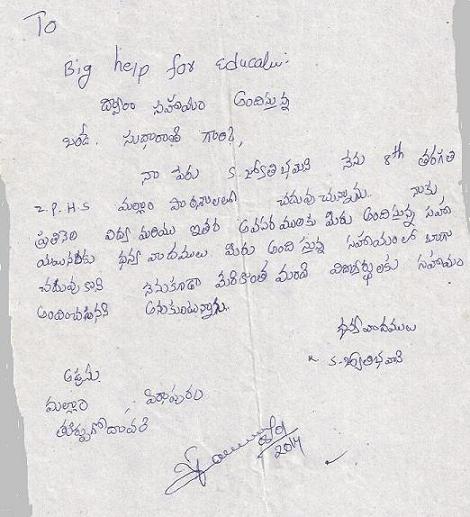 To
Big help for Educatin:
ద్వారా సహాయం అందిస్తున్న
బండి. సుధారాణి గారికి,
నా పేరు S. జ్యోతిభవాని నేను 8th తరగతి
Z.P.H.S మల్లాం పాఠశాలలో చదువుచున్నాను. నాకు
ప్రతినెల విద్య మరియు ఇతర అవసరములకు మీరు అందిస్తున్న సహా
ధన్యవాదములు మీరు అందిస్తున్న సహాయంతో బాగా
చదువుకొని నేనుకూడా మరికొంత మంది విద్యార్థులకు సహాయం
అందించడానికి అనుకుంటున్నాను.
ధన్యవాదములు
S. జ్యోతిభవాని
మల్లాం పిఠాపురం
తూర్పుగోదావరి
2014